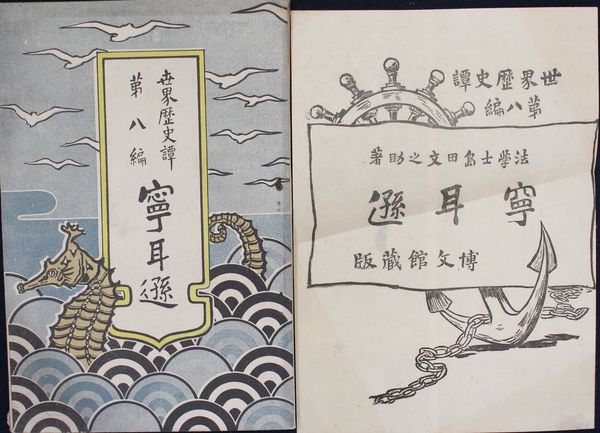 世界歷史譚
第八編
寧耳遜
世界歷史譚
第八編
法學士島田文之助著
寧耳遜
博文館藏版